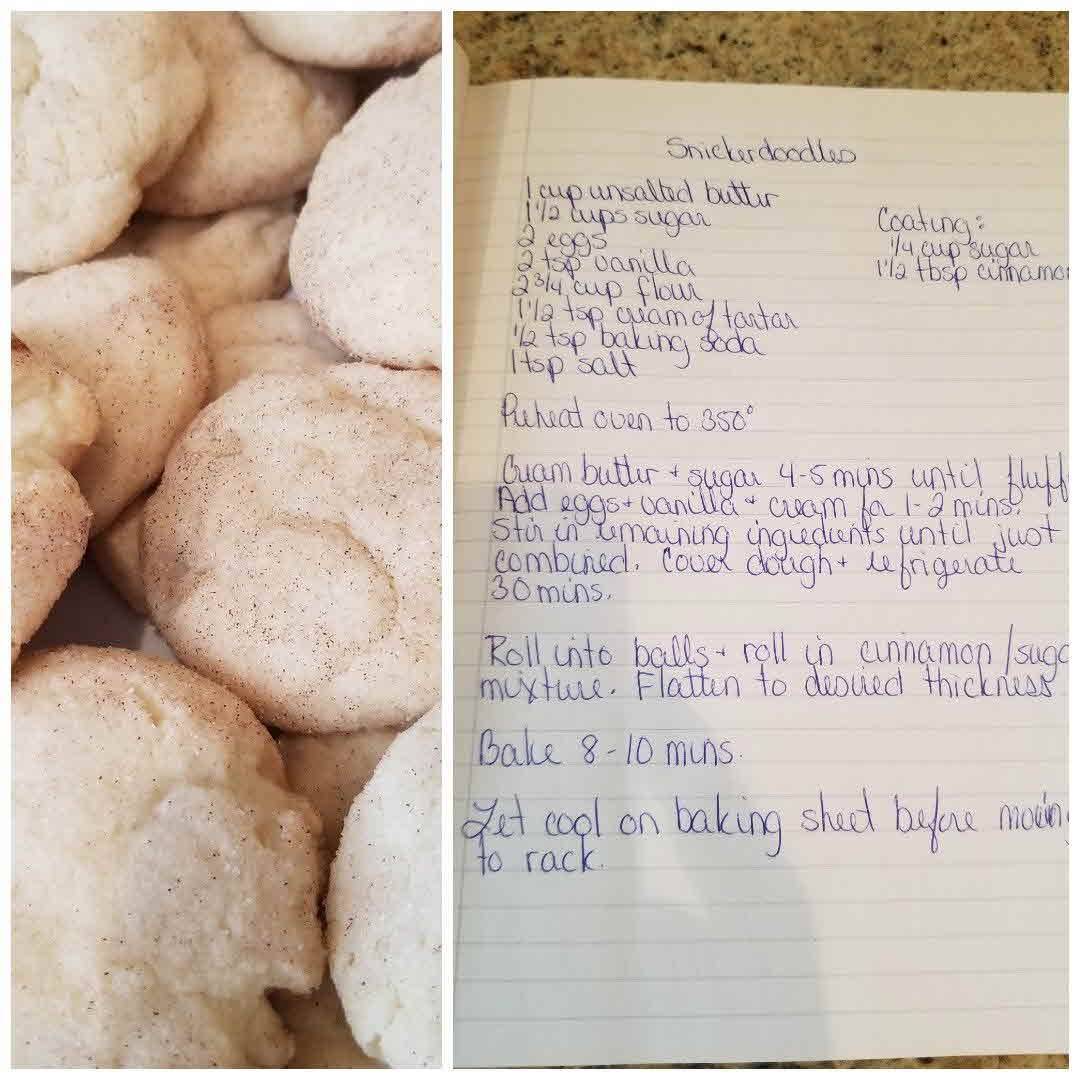 Snickerdoodles
1 cup unsalted butter
1 1/2 cups sugar
2 eggs
2 tsp vanilla
2 3/4 cup flour
1 1/2 tsp cream of tartar
1/2 tsp baking soda
1 tsp salt
Coating:
1/4 cup sugar
1 1/2 tbsp cinnamo
Preheat oven to 350°
Cream butter + sugar 4-5 mins until fluff
Add eggs + vanilla + cream for 1-2 mins.
Stir in remaining ingredients until just
combined. Cover dough + refrigerate
30 mins.
Roll into balls + roll in cinnamon/suga
mixture. Flatten to desired thickness
Bake 8-10 mins.
Let cool on baking sheet before movin
to rack.